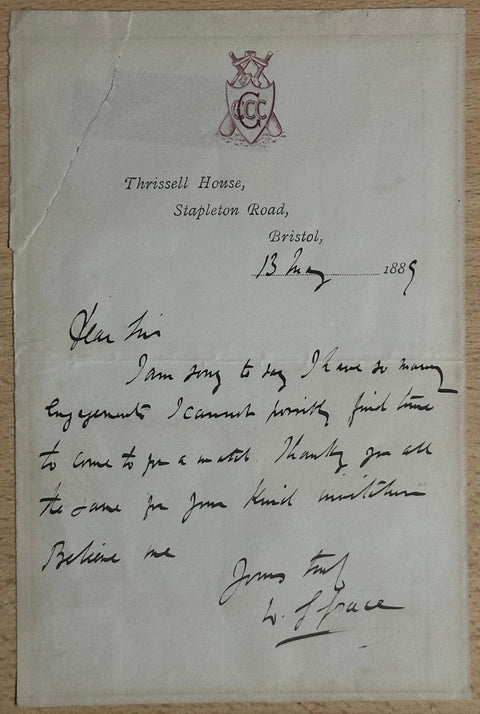 CCCC
G
Thrissell House,
Stapleton Road,
Bristol,
13 May 1889
Dear Sir
I am sorry to say I have so many
Engagements I cannot possibly find time
to come to you a match. Thanking you all
the same for your kind invitation
Believe me
Yours truly
W. G Grace